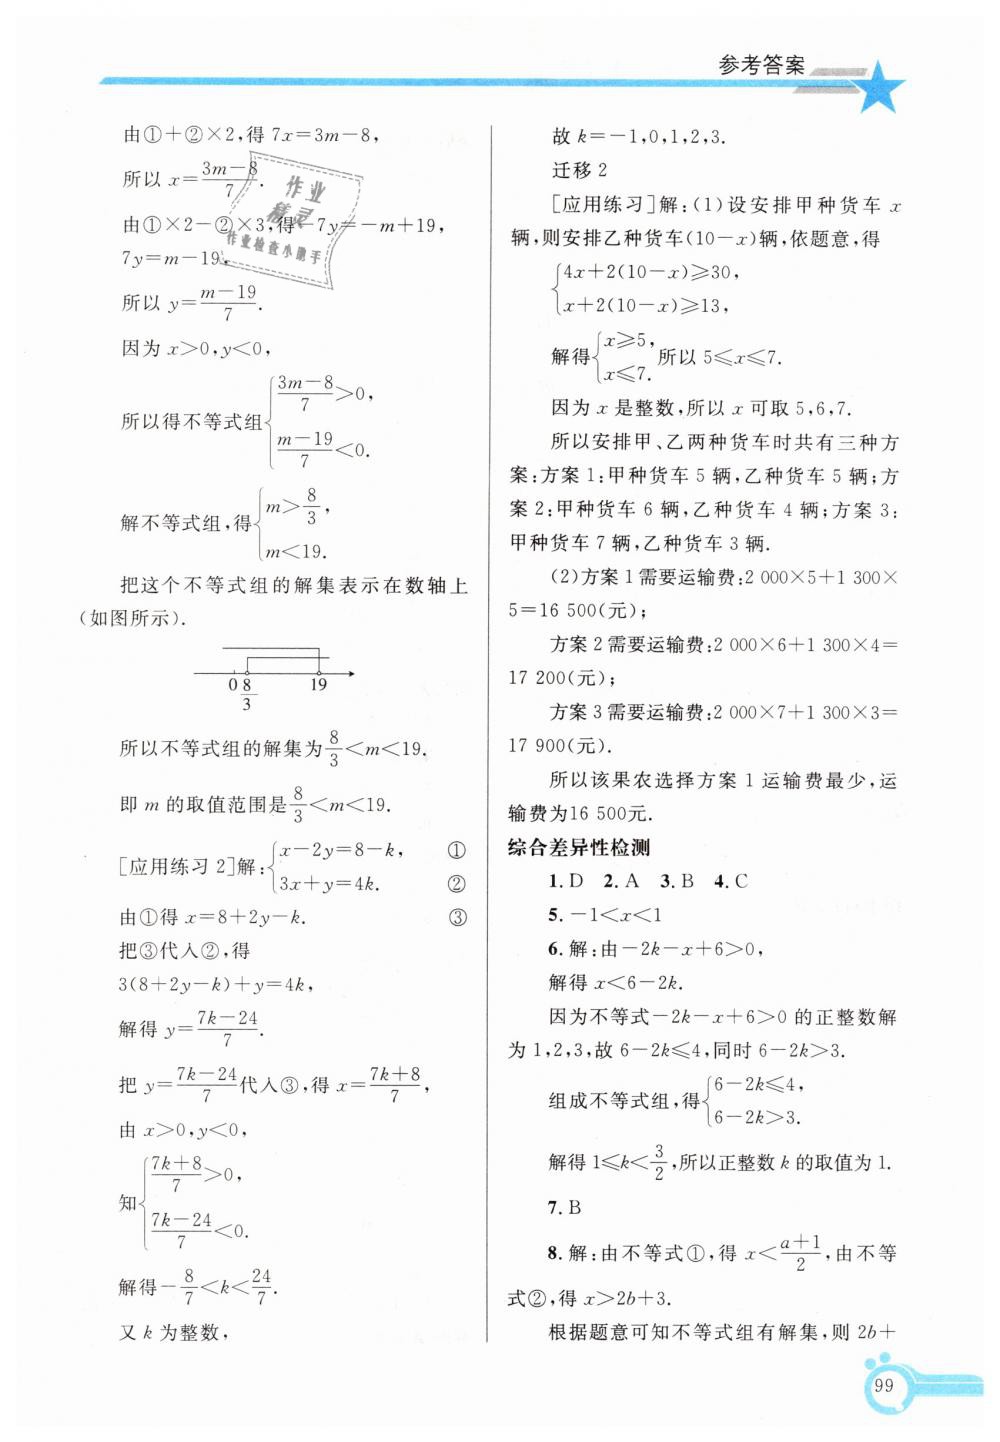 参考答案
由①+②×2,得 7x=3m-8,
所以 x=\frac{3m-8}{7}.
由①×2-②×3,得-7y=-m+19,
7y=m-19,
所以 y=\frac{m-19}{7}.
因为 x>0,y<0,
所以得不等式组{\frac{3m-8}{7}>0,
\frac{m-19}{7}<0.
解不等式组,得{m>\frac{8}{3},
m<19.
把这个不等式组的解集表示在数轴上
(如图所示).
0 \frac{8}{3} 19
所以不等式组的解集为\frac{8}{3}<m<19.
即 m 的取值范围是\frac{8}{3}<m<19.
[应用练习 2]解:{x-2y=8-k, ①
3x+y=4k. ②
由①得 x=8+2y-k. ③
把③代入②,得
3(8+2y-k)+y=4k,
解得 y=\frac{7k-24}{7}.
把 y=\frac{7k-24}{7}代入③,得 x=\frac{7k+8}{7},
由 x>0,y<0,
知{\frac{7k+8}{7}>0,
\frac{7k-24}{7}<0.
解得-\frac{8}{7}<k<\frac{24}{7}.
又 k 为整数,
故 k=-1,0,1,2,3.
迁移 2
[应用练习]解:(1)设安排甲种货车 x
辆,则安排乙种货车(10-x)辆,依题意,得
{4x+2(10-x)≥30,
x+2(10-x)≥13,
解得{x≥5,
x≤7. 所以 5≤x≤7.
因为 x 是整数,所以 x 可取 5,6,7.
所以安排甲、乙两种货车时共有三种方
案:方案 1:甲种货车 5 辆,乙种货车 5 辆;方
案 2:甲种货车 6 辆,乙种货车 4 辆;方案 3:
甲种货车 7 辆,乙种货车 3 辆.
(2)方案 1 需要运输费:2 000×5+1 300×
5=16 500(元);
方案 2 需要运输费:2 000×6+1 300×4=
17 200(元);
方案 3 需要运输费:2 000×7+1 300×3=
17 900(元).
所以该果农选择方案 1 运输费最少,运
输费为16 500元.
综合差异性检测
1. D 2. A 3. B 4. C
5. -1<x<1
6. 解:由-2k-x+6>0,
解得 x<6-2k.
因为不等式-2k-x+6>0 的正整数解
为 1,2,3,故 6-2k≤4,同时 6-2k>3.
组成不等式组,得{6-2k≤4,
6-2k>3.
解得 1≤k<\frac{3}{2},所以正整数 k 的取值为 1.
7. B
8. 解:由不等式①,得 x<\frac{a+1}{2},由不等
式②,得 x>2b+3.
根据题意可知不等式组有解集,则 2b+
99
作业
精灵
作业检查小助手